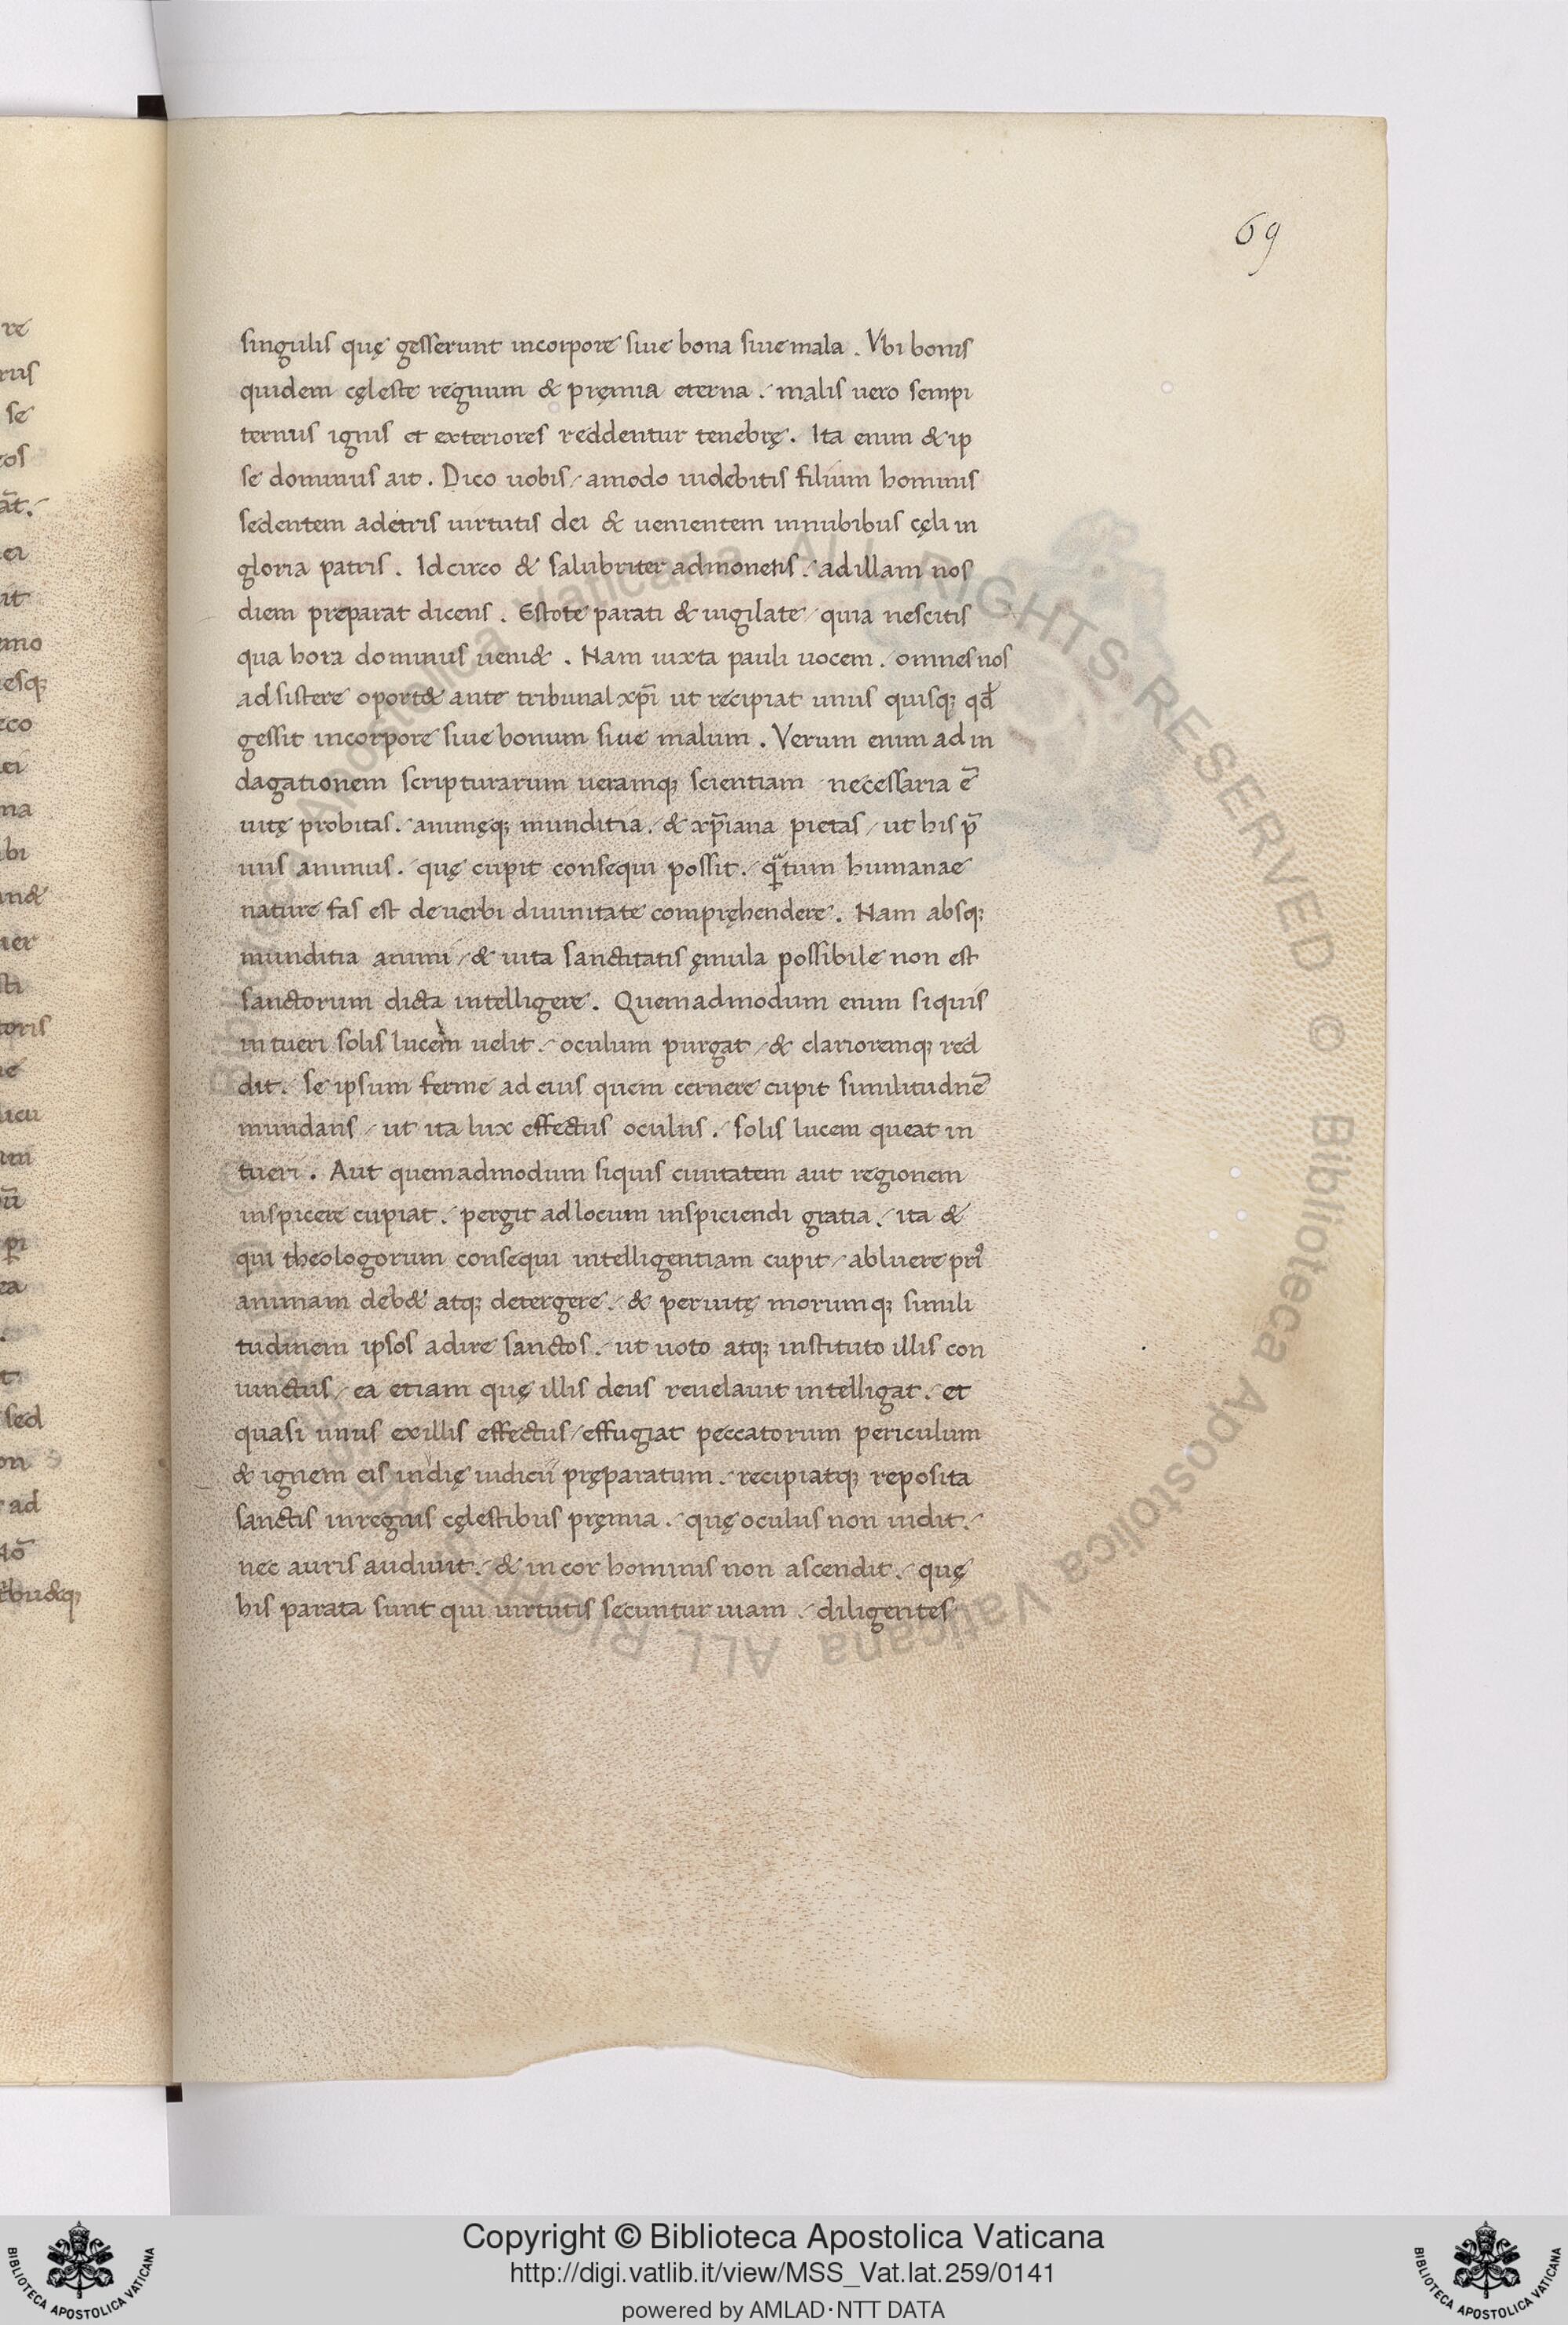 69
singulis quę gesserunt incorpore siue bona siue mala . Vbi bonis
quidem cęleste regnum & pręmia eterna ./ malis uero sempi
ternus ignis et exteriores reddentur tenebrę . Ita enim & ip
se dominus ait . Dico uobis / amodo uidebitis filium hominis
sedentem adetris uirtutis dei & uenientem innubibus cęli in
gloria patris . Idcirco & salubriter admonens ./ adillam nos
diem preparat dicens . Estote parati & uigilate / quia nescitis
qua hora dominus ueni& . Nam iuxta pauli uocem ./ omnes nos
adsistere oport& ante tribunal xp̄i ut recipiat unus quisq; qđ
gessit incorpore siue bonum siue malum . Verum enim ad in
dagationem scripturarum ueramq; scientiam necessaria ē
uitę probitas ./ animęq; munditia ./ & xp̄iana pietas / ut his p̄
uius animus ./ quę cupit consequi possit ./ q̄tum humanae
nature fas est de uerbi diuinitate compręhendere . Nam absq;
munditia animi / & uita sanctitatis ęmula possibile non est
sanctorum dicta intelligere . Quemadmodum enim siquis
intueri solis lucem uelit ./ oculum purgat / & clarioremq; red
dit ./ se ipsum ferme ad eius quem cernere cupit similitudinē
mundans / ut ita lux effectus oculus ./ solis lucem queat in
tueri . Aut quemadmodum siquis ciuitatem aut regionem
inspicere cupiat ./ pergit adlocum inspiciendi gratia ./ ita &
qui theologorum consequi intelligentiam cupit / abluere pri⁹
animam deb& atq; detergere ./ & per uitę morumq; simili
tudinem ipsos adire sanctos ./ ut uoto atq; instituto illis con
iunctus / ea etiam quę illis deus reuelauit intelligat ./ et
quasi unus exillis effectus / effugiat peccatorum periculum
& ignem eis indię iudicii pręparatum ./ recipiatq; reposita
sanctis inregnis cęlestibus pręmia ./ quę oculus non uidit ./
nec auris audiuit ./ & in cor hominis non ascendit ./ quę
his parata sunt qui uirtutis secuntur uiam ./ diligentes
Copyright © Biblioteca Apostolica Vaticana
http://digi.vatlib.it/view/MSS_Vat.lat.259/0141
powered by AMLAD·NTT DATA